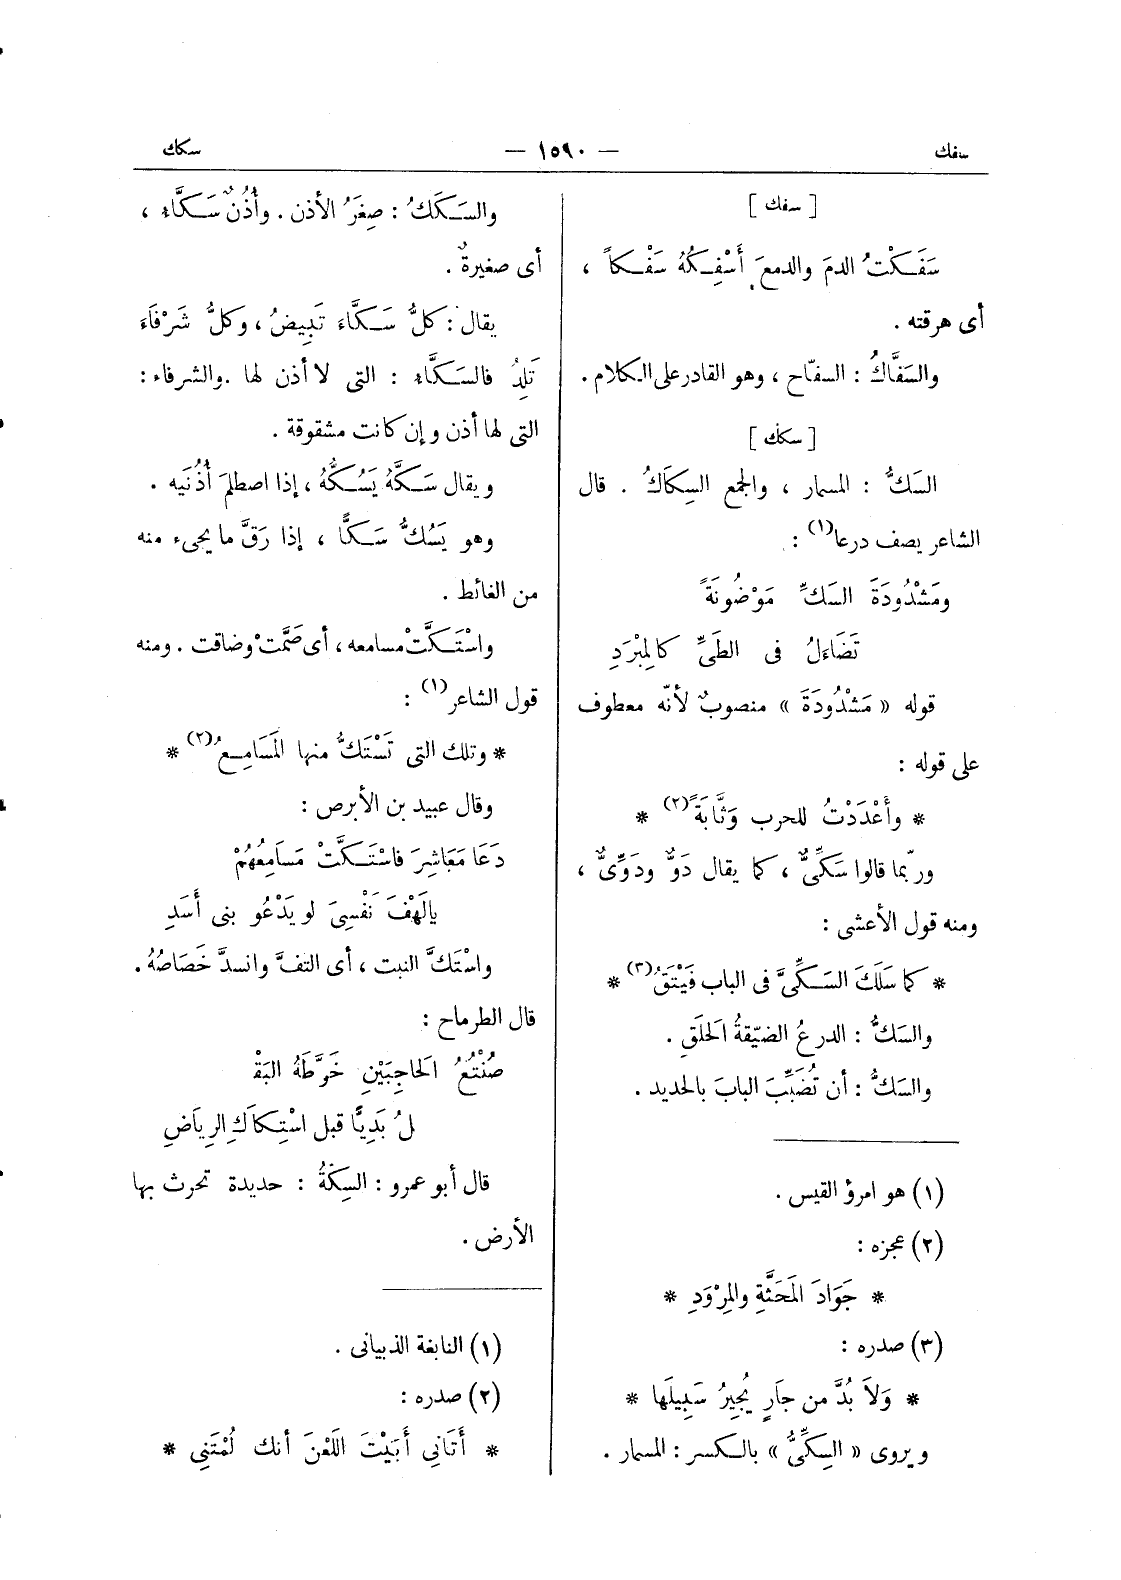 سفك
— ١٥٩٠ —
سكك
[ سفك ]
سَفَكْتُ الدمَ والدمعَ أَسْفِكُهُ سَفْكاً ،
أى هرقته .
والسَفَّاكُ : السفّاح ، وهو القادر على الكلام .
[ سكك ]
السَكُّ : المسمار ، والجمع السِكَاكُ . قال
الشاعر يصف درعا(١) :
ومَشْدُودَةَ السَكِّ مَوْضُونَةً
تَضَاءَلُ فى الطَىِّ كالمِبْرَدِ
قوله « مَشْدُودَةَ » منصوبٌ لأنّه معطوف
على قوله :
* وأَعْدَدْتُ للحرب وَثَّابَةً(٢) *
وربّما قالوا سَكِّىٌّ ، كما يقال دَوٌّ ودَوِّىٌّ ،
ومنه قول الأعشى :
* كما سَلَكَ السَكِّىَّ فى الباب فَيْتَقُ(٣) *
والسَكُّ : الدرعُ الضيّقةُ الحَلَقِ .
والسَكُّ : أن تُضَبِّبَ البابَ بالحديد .
(١) هو امرؤ القيس .
(٢) عجزه :
* جَوَادَ المَحَثَّةِ والمِرْوَدِ *
(٣) صدره :
* وَلاَ بُدَّ من جَارٍ يُجِيرُ سَبِيلَها *
ويروى « السِكِّىُّ » بالكسر : المسمار .
والسَكَكُ : صِغَرُ الأذن . وأُذُنٌ سَكَّاءُ ،
أى صغيرةٌ .
يقال : كلُّ سَكَّاءَ تَبِيضُ ، وكلُّ شَرْفَاءَ
تَلِدُ فالسَكَّاءُ : التى لا أذن لها . والشرفاء :
التى لها أذن وإن كانت مشقوقة .
ويقال سَكَّهُ يَسُكُّهُ ، إذا اصطلمَ أُذُنَيه .
وهو يَسُكُّ سَكًّا ، إذا رَقَّ ما يجىء منه
من الغائط .
واسْتَكَّتْ مسامعه ، أى صَمَّتْ وضاقت . ومنه
قول الشاعر(١) :
* وتلك التى تَسْتَكُّ منها المَسَامِعُ(٢) *
وقال عبيد بن الأبرص :
دَعَا مَعَاشِرَ فاسْتَكَّتْ مَسَامِعُهُمْ
يالَهْفَ نَفْسِىَ لو يَدْعُو بنى أَسَدِ
واسْتَكَّ النبت ، أى التفَّ وانسدَّ خَصَاصُهُ .
قال الطرماح :
صُنْتُعُ الحَاجِبَيْنِ خَرَّطَهُ البَقْـ
لُ بَدِيًّا قبل اسْتِكَاكِ الرِيَاضِ
قال أبو عمرو : السِكّةُ : حديدة تحرث بها
الأرض .
(١) النابغة الذبيانى .
(٢) صدره :
* أَتَانِى أَبَيْتَ اللَعْنَ أنك لُمْتَنِى *